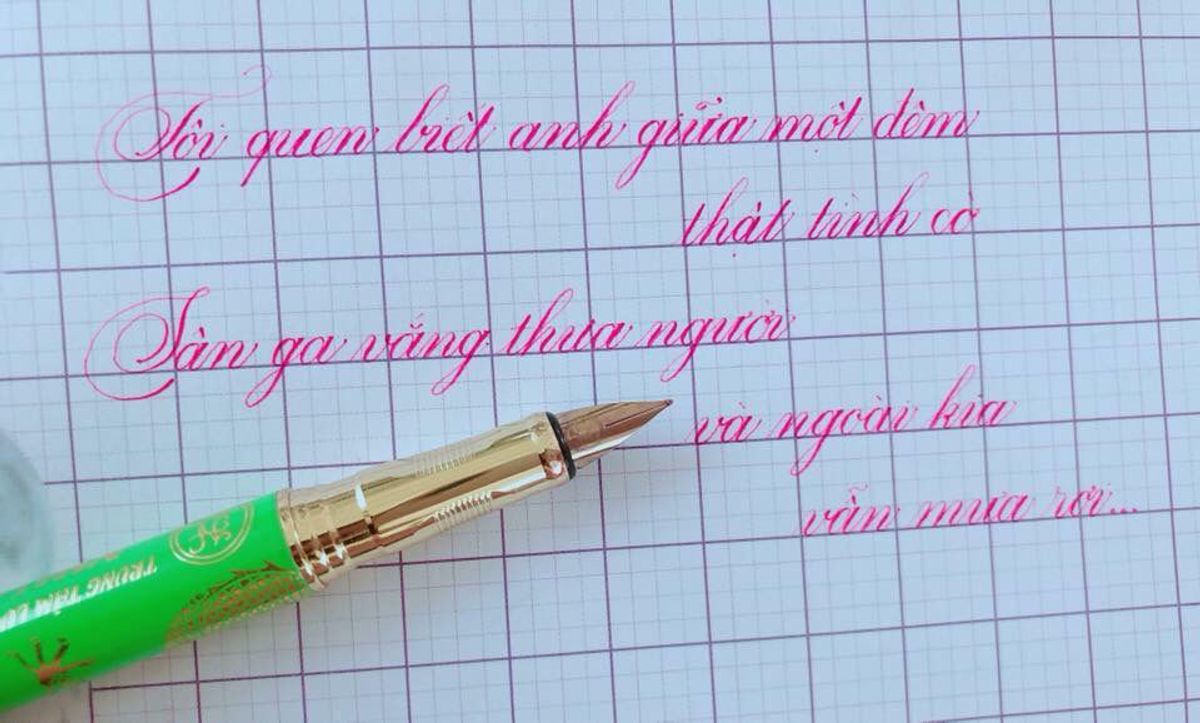 Tôi quen biết anh giữa một đêm
thật tình cờ
Sân ga vắng thưa người
và ngoài kia
vẫn mưa rơi...
TRUNG TÂM